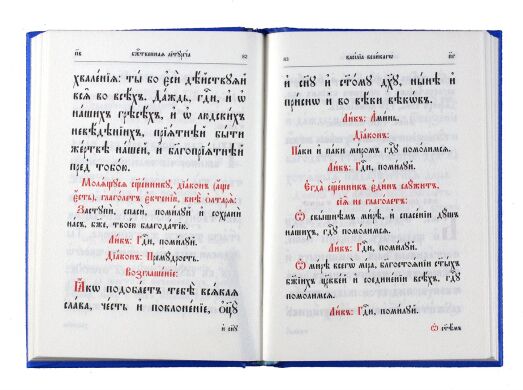 п҃в Бж҃е́ственнаѧ лїтꙋргі́а 82
хвале́нїѧ: ты̀ бо є҆сѝ дѣ́йствꙋѧй
всѧ̑ во всѣ́хъ. Да́ждь, гдⷭ҇и, и҆ ѡ҆
на́шихъ грѣсѣ́хъ, и҆ ѡ҆ людски́хъ
невѣ́дѣнїихъ, прїѧ́тнѣй бы́ти
же́ртвѣ на́шей, и҆ бл҃гопрїѧ́тнѣй
пред̾ тобо́ю.
Молѧ́щꙋсѧ сщ҃е́нникꙋ, дїа́конъ (а҆́ще
є҆́сть), глаго́летъ є҆ктенїѝ, внѣ̀ ѻ҆лтарѧ̀.
Застꙋпѝ, спасѝ, поми́лꙋй и҆ сохранѝ
на́съ, бж҃е, твое́ю благода́тїю.
Ли́къ: Гдⷭ҇и, поми́лꙋй.
Дїа́конъ: Премꙋ́дрость.
Возглаше́нїе:
Ꙗ҆́кѡ подоба́етъ тебѣ̀ всѧ́каѧ
сла́ва, че́сть и҆ поклоне́нїе, ѻ҆ц҃ꙋ̀
и҆ сн҃ꙋ
83 васі́лїа вели́кагѡ п҃г
и҆ сн҃ꙋ и҆ ст҃о́мꙋ дх҃ꙋ, ны́нѣ и҆
при́снѡ и҆ во вѣ́ки вѣкѡ́въ.
Ли́къ: А҆ми́нь.
Дїа́конъ:
Па́ки и҆ па́ки ми́ромъ гдⷭ҇ꙋ помо́лимсѧ.
Ли́къ: Гдⷭ҇и, поми́лꙋй.
Є҆гда̀ сщ҃е́нникъ є҆ди́нъ слꙋ́житъ,
сїѧ̑ не глаго́летъ:
Ѡ҆ свы́шнѣмъ ми́рѣ, и҆ спасе́нїи дꙋ́шъ
на́шихъ, гдⷭ҇ꙋ помо́лимсѧ.
Ли́къ: Гдⷭ҇и, поми́лꙋй.
Ѡ҆ ми́рѣ всегѡ̀ мі́ра, благостоѧ́нїи ст҃ы́хъ
бж҃їихъ цр҃кве́й и҆ соедине́нїи всѣ́хъ, гдⷭ҇ꙋ
помо́лимсѧ.
Ли́къ: Гдⷭ҇и, поми́лꙋй.
Ѡ҆ ст҃ѣ́мъ